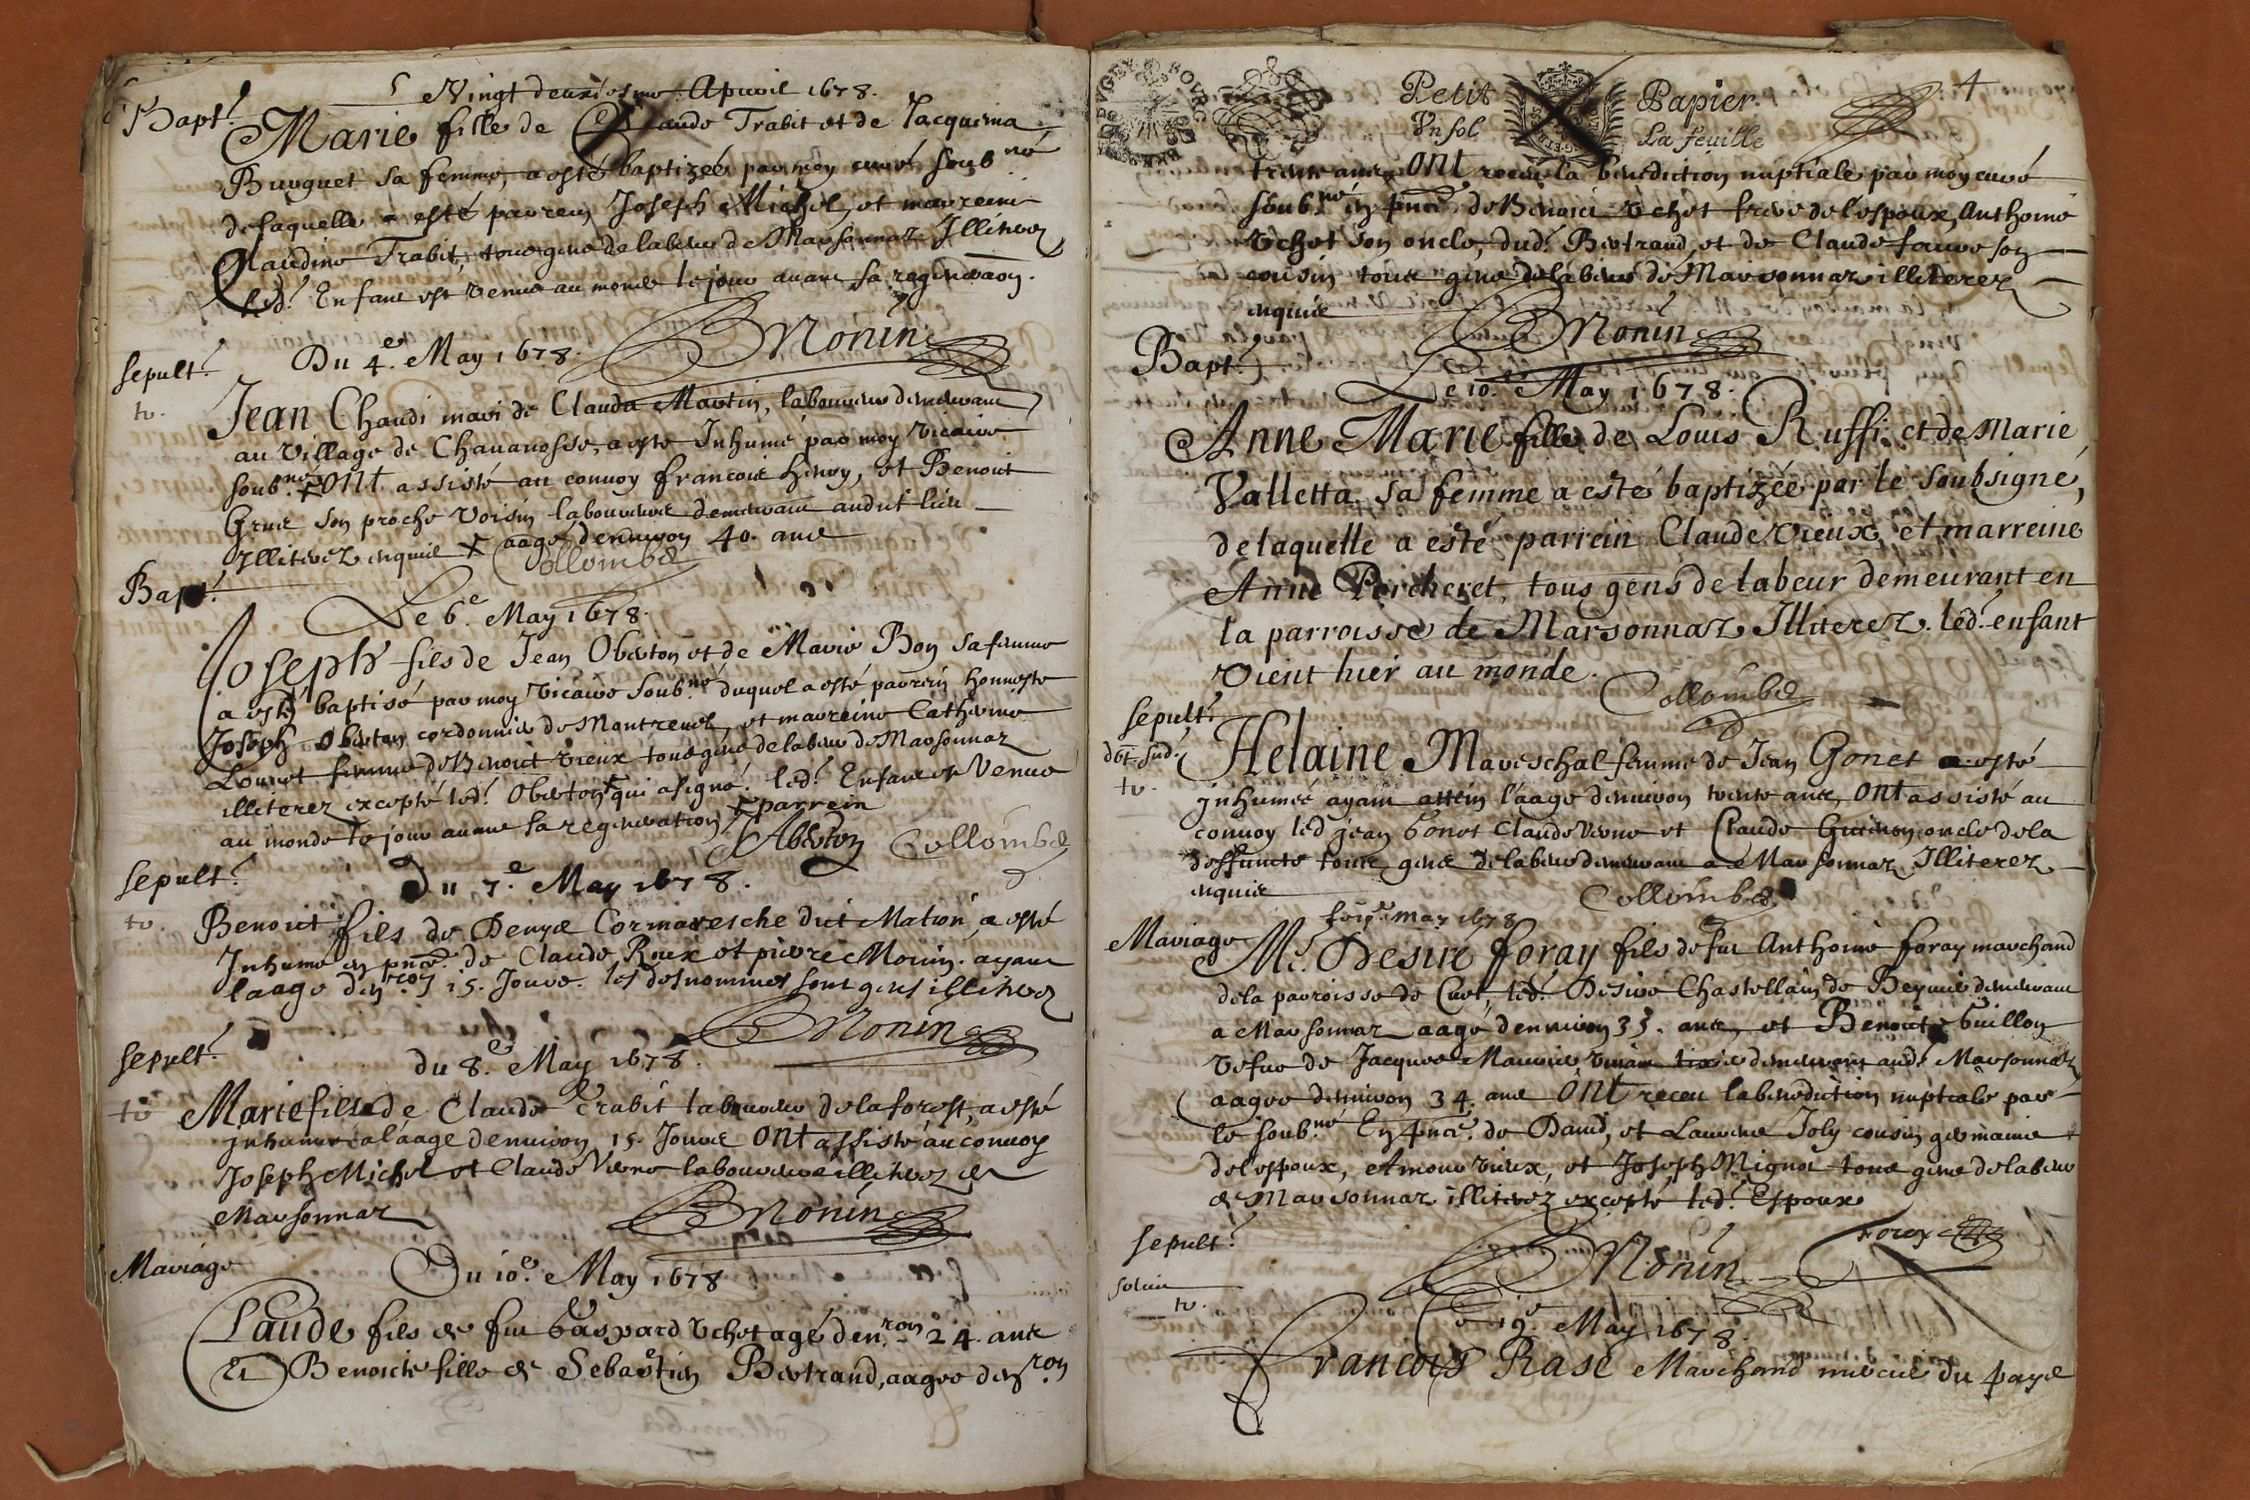 Vingt deuxiesme Apuril 1678.
Bapt.
Marie fille de Claude Trabit et de Jacquema
Burguet sa femme, a esté baptizéé par moy curé soub.né
de laquelle a esté parrein Joseph Michel, et marreine
Claudine Trabit, tous gens de labeur de Marsonnaz Illiterez
led. Enfant est venue au monde le jour avant sa regeneraon.
BMonin
sepult.
Du 4.e May 1678.
tv.
Jean Chaudi mari de Clauda Martin, laboureur demeurant
au village de Chavanosse, a esté Inhumé par moy vicaire
soub.né + ont assisté au convoy francois henry, et Benoit
son proche voisin laboureurs demeurant audit lieu
Illiterez enquis + aagé denuiron 40. ans
Collombet
Bapt.
Le 6.e May 1678.
Joseph fils de Jean Oberton et de Marie Bon sa femme
a esté baptisé par moy vicaire soub.né duquel a esté parrein honneste
Joseph Oberton cordonnier de Montreuel, et marreine Catherine
Louuet femme de Benoict vieux tous gens de labeur de Marsonnaz
illiterez excepté led. Oberton + qui a signé. led. Enfant est venue
au monde le jour avant sa regeneration + parrein
JAberton Collombet
sepult.
Du 7.e May 1678.
tv.
Benoict fils de Denys Cormaresche dict Mation, a esté
Inhumé en pnce. de Claude Roux et pierre Monin. ayant
laage den.ron 15. Jours. les desnommes sont gens illiterez
BMonin
sepult.
du 8.e May 1678.
tv
Marie fille de Claude Trabit laboureur de la forest, a esté
Inhumee a l'aage denuiron 15. Jours ont assisté au convoy
Joseph Michel et Claude Verne laboureurs illiterez de
Marsonnaz
BMonin
Mariage
Du 10.e May 1678
Claude fils de fut Gaspard Vchet agé den.ron 24. ans
Et Benoicte fille de Sebastien Bertrand, aagee den.ron
4
Petit Papier
Vn sol La feuille
trente ans ont receu la benediction nuptiale par moy curé
soub.né en pnce de Benoict Vchet frere de l'espoux, Anthoine
Vchet son oncle, dud. Bertrand, et de Claude faure son
cousin tous gens de labeur de Marsonnaz illiterez
enquis
BMonin
Bapt.
Le 10.e May 1678.
Anne Marie fille de Louis Ruffi et de Marie
Valletta sa femme a esté baptizéé par le soubsigné,
de laquelle a esté parrein Claude Vieux, et marreine
Anne Percheret, tous gens de labeur demeurant en
la parroisse de Marsonnaz Illiterez. led. enfant
vient hier au monde.
Collombet
sepult.
tv.
Helaine Mareschal femme de Jean Gonet a esté
inhumeé ayant attein l'aage denuiron trente ans, ont assisté au
convoy led jean Gonet Claude Verne et Claude Guienon oncle de la
deffuncte tous gens de labeur demeurant a Marsonnaz Illiterez
enquis
Collombet
may 1678
Mariage
Me. Desiré foray fils de fut Anthoine foray marchand
de la parroisse de Curt, led. Desiré Chastellain de Beyuie demeurant
a Marsonnaz aagé denuiron 33. ans, et Benoicte Guillon
vefue de Jacques demeurant aud. Marsonnaz
aagee denuiron 34. ans ont receu la benediction nuptiale par
le soub.né En pnce. de David, et Laurent Joly cousin germains
de l'espoux, Aimour vieux, et Joseph Mignot tous gens de labeur
de Marsonnaz illiterez excepté led. Espoux
Foray
BMonin
sepult.
tv.
Le 19.e May 1678.
Francois Rase Marchand mercié du pays